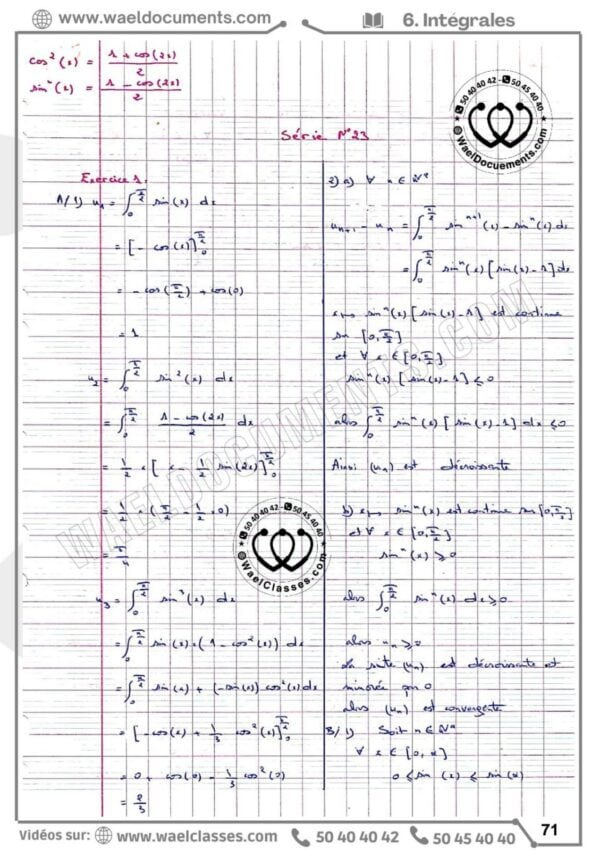 www.waeldocuments.com
6. Intégrales
cos²(x) = (1 + cos(2x))/2
sin²(x) = (1 - cos(2x))/2
Série N°23
Exercice 1.
A/1) u₁ = ∫₀^(π/2) sin(x) dx
= [- cos(x)]₀^(π/2)
= - cos(π/2) + cos(0)
= 1
u₂ = ∫₀^(π/2) sin²(x) dx
= ∫₀^(π/2) (1 - cos(2x))/2 dx
= 1/2 × [x - 1/2 sin(2x)]₀^(π/2)
= 1/2 × (π/2 - 1/2 × 0)
= π/4
u₃ = ∫₀^(π/2) sin³(x) dx
= ∫₀^(π/2) sin(x) × (1 - cos²(x)) dx
= ∫₀^(π/2) sin(x) + (-sin(x)) cos²(x) dx
= [-cos(x) + 1/3 cos³(x)]₀^(π/2)
= 0 + cos(0) - 1/3 cos³(0)
= 2/3
2) a) ∀ n ∈ ℕ*
uₙ₊₁ - uₙ = ∫₀^(π/2) sinⁿ⁺¹(x) - sinⁿ(x) dx
= ∫₀^(π/2) sinⁿ(x) [sin(x) - 1] dx
x ↦ sinⁿ(x) [sin(x) - 1] est continue
sur [0, π/2]
et ∀ x ∈ [0, π/2]
sinⁿ(x) [sin(x) - 1] ≤ 0
alors ∫₀^(π/2) sinⁿ(x) [sin(x) - 1] dx ≤ 0
Ainsi (uₙ) est décroissante
b) x ↦ sinⁿ(x) est continue sur [0, π/2]
et ∀ x ∈ [0, π/2]
sinⁿ(x) ≥ 0
alors ∫₀^(π/2) sinⁿ(x) dx ≥ 0
alors uₙ ≥ 0
La suite (uₙ) est décroissante et
minorée par 0
alors (uₙ) est convergente
B/ 1) Soit n ∈ ℕ*
∀ x ∈ [0, α]
0 ≤ sin(x) ≤ sin(α)
50 40 40 42 - 50 45 40 40
WaelDocuements.com
50 40 40 42 - 50 45 40 40
WaelClasses.com
WAELDOCUMENTS.COM
71
Vidéos sur: www.waelclasses.com 50 40 40 42 50 45 40 40